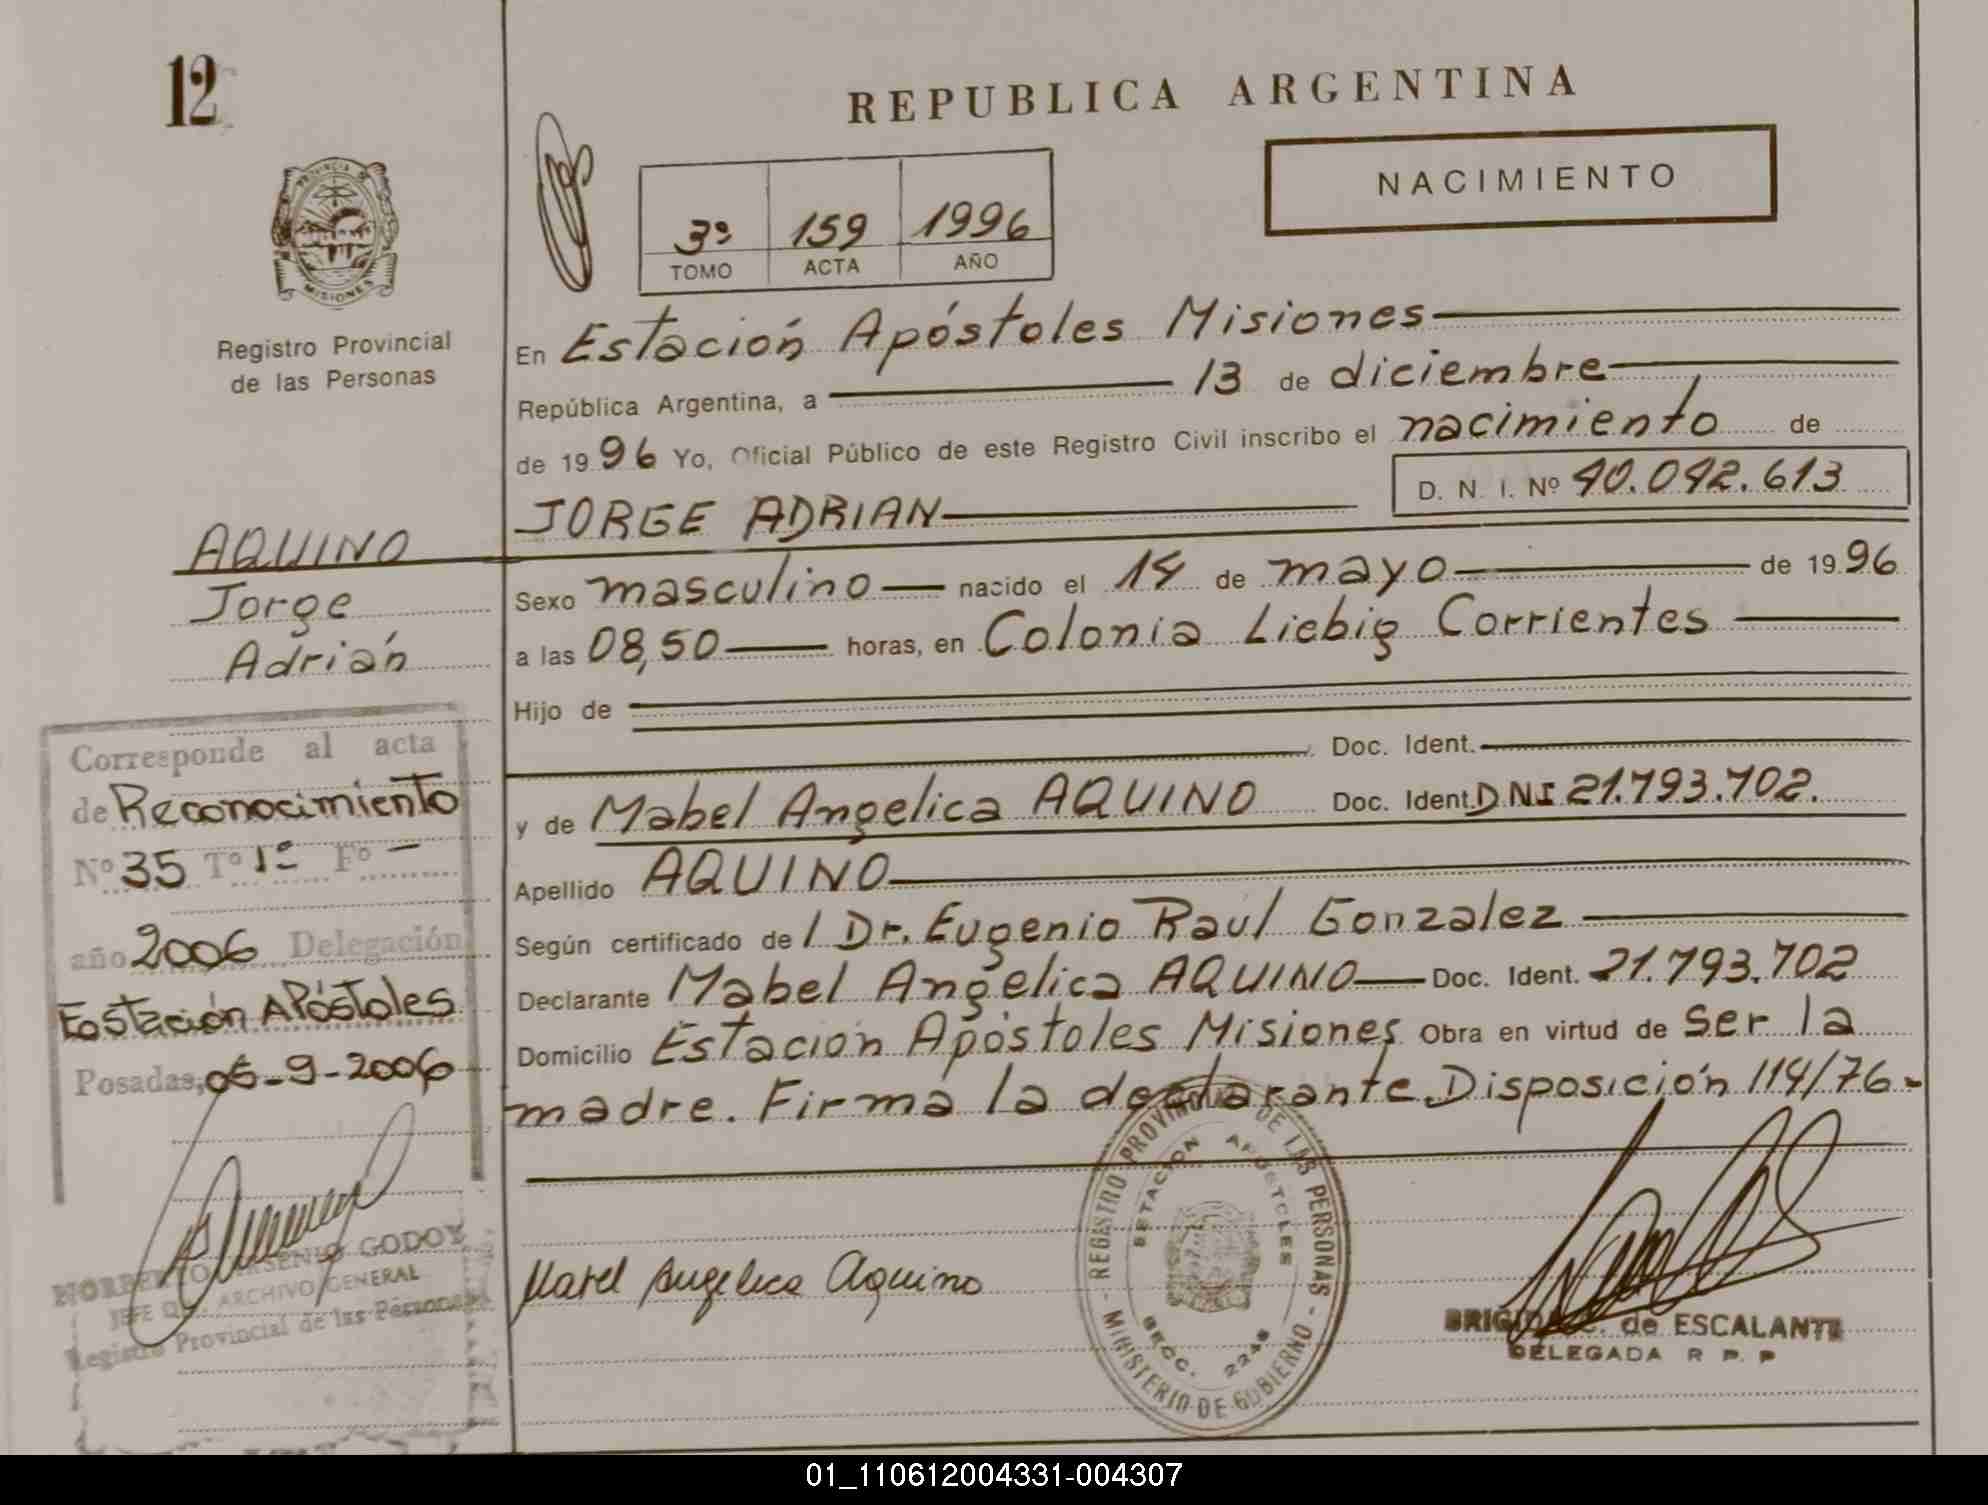 12
PROVINCIA DE
MISIONES
Registro Provincial
de las Personas
AQUINO
Jorge
Adrián
Corresponde al acta
de Reconocimiento
Nº 35 Tº 1º Fº —
año 2006 Delegación
Estación Apóstoles
Posadas, 05-9-2006
NORBERTO ARSENIO GODOY
JEFE ARCHIVO GENERAL
Registro Provincial de las Personas
REPUBLICA ARGENTINA
NACIMIENTO
3º 159 1996
TOMO ACTA AÑO
En Estación Apóstoles Misiones
República Argentina, a 13 de diciembre
de 1996 Yo, Oficial Público de este Registro Civil inscribo el nacimiento de
JORGE ADRIAN D. N. I. Nº 40.042.613
Sexo masculino nacido el 14 de mayo de 1996
a las 08,50 horas, en Colonia Liebig Corrientes
Hijo de
Doc. Ident.
y de Mabel Angelica AQUINO Doc. Ident. DNI 21.793.702.
Apellido AQUINO
Según certificado del Dr. Eugenio Raúl Gonzalez
Declarante Mabel Angelica AQUINO Doc. Ident. 21.793.702
Domicilio Estación Apóstoles Misiones Obra en virtud de ser la
madre. Firma la declarante. Disposición 114/76-
Mabel Angelica Aquino
REGISTRO PROVINCIAL DE LAS PERSONAS
- MINISTERIO DE GOBIERNO -
ESTACION APOSTOLES
SECC. 2248
de ESCALANTE
DELEGADA R P. P
01_110612004331-004307